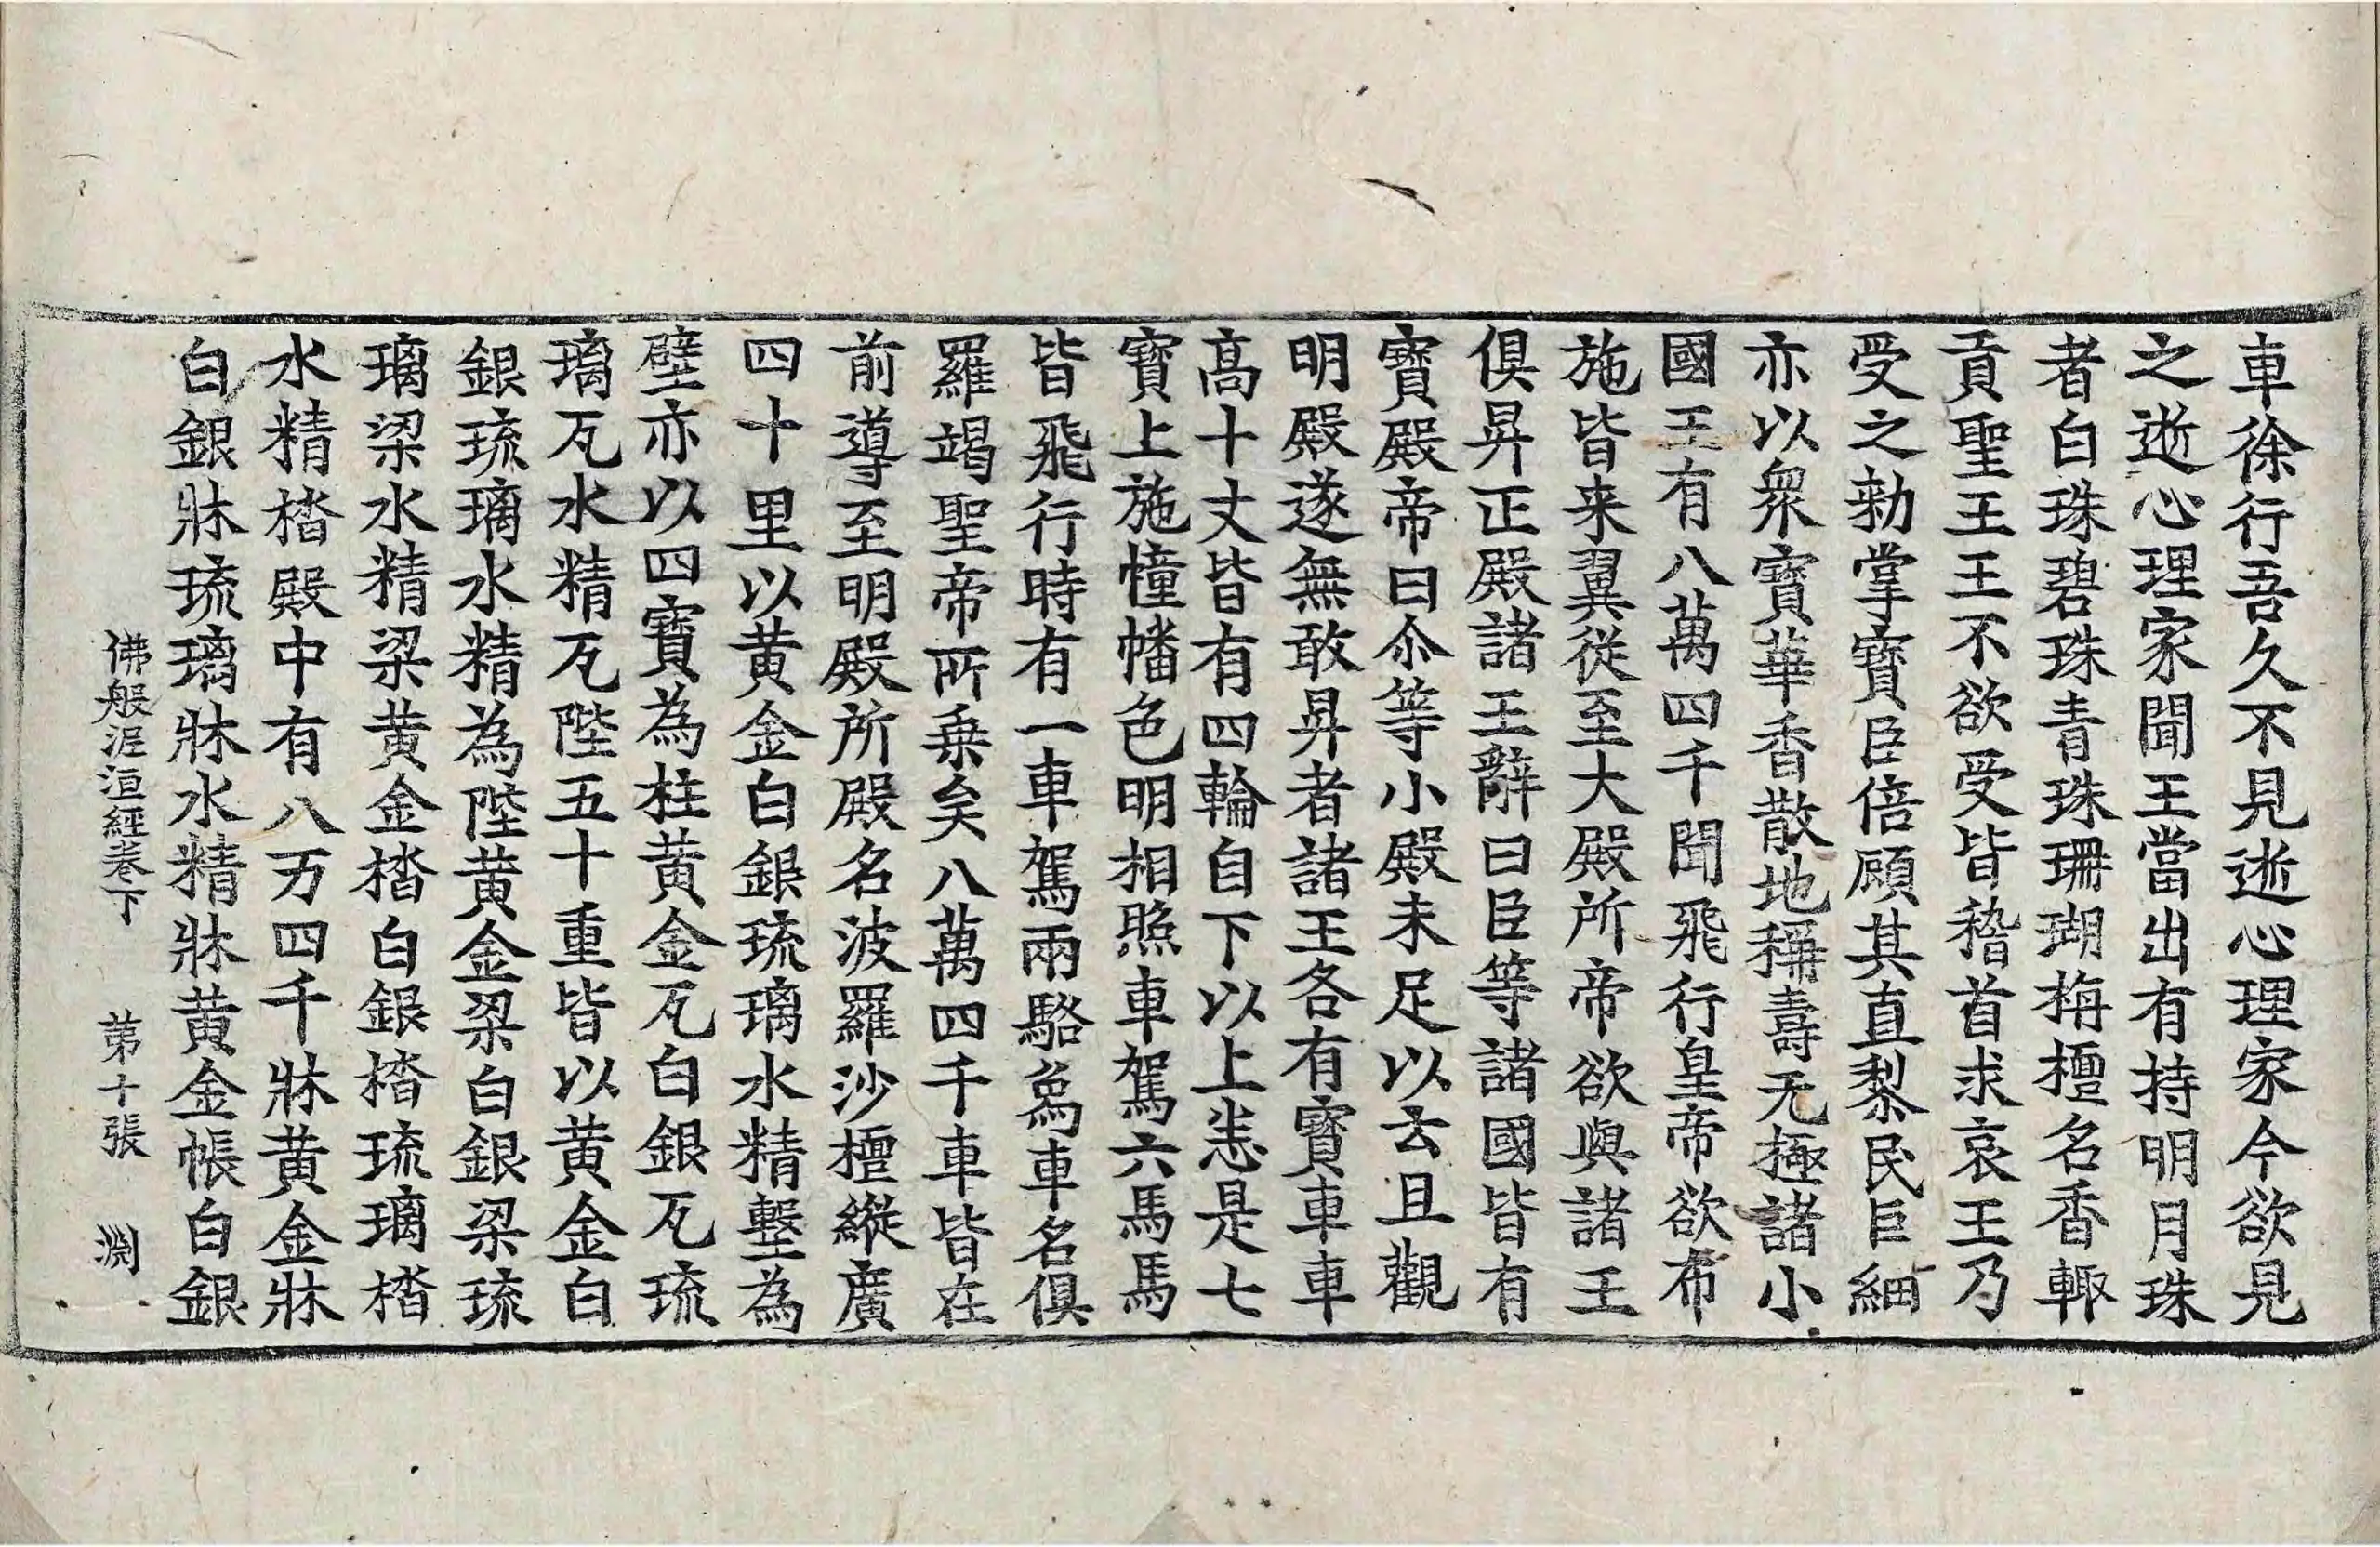 車徐行吾久不見逝心理家今欲見
之逝心理家聞王當出有持明月珠
者白珠碧珠青珠珊瑚栴檀名香輙
貢聖王王不欲受皆稽首求哀王乃
受之勑掌寶臣倍顧其直黎民巨細
亦以衆寶華香散地稱壽无極諸小
國王有八萬四千聞飛行皇帝欲布
施皆来翼從至大殿所帝欲與諸王
俱昇正殿諸王辭曰臣等諸國皆有
寶殿帝曰尒等小殿未足以去且觀
明殿遂無敢昇者諸王各有寶車車
高十丈皆有四輪自下以上悉是七
寶上施幢幡色明相照車駕六馬馬
皆飛行時有一車駕兩駱為車名俱
羅竭聖帝所乗矣八萬四千車皆在
前導至明殿所殿名波羅沙檀縱廣
四十里以黄金白銀琉璃水精墼為
壁亦以四寶為柱黄金瓦白銀瓦琉
璃瓦水精瓦陛五十重皆以黄金白
銀琉璃水精為陛黄金梁白銀梁琉
璃梁水精梁黄金楷白銀楷琉璃楷
水精楷殿中有八万四千牀黄金牀
白銀牀琉璃牀水精牀黄金帳白銀
佛般泥洹經卷下　第十張　淵